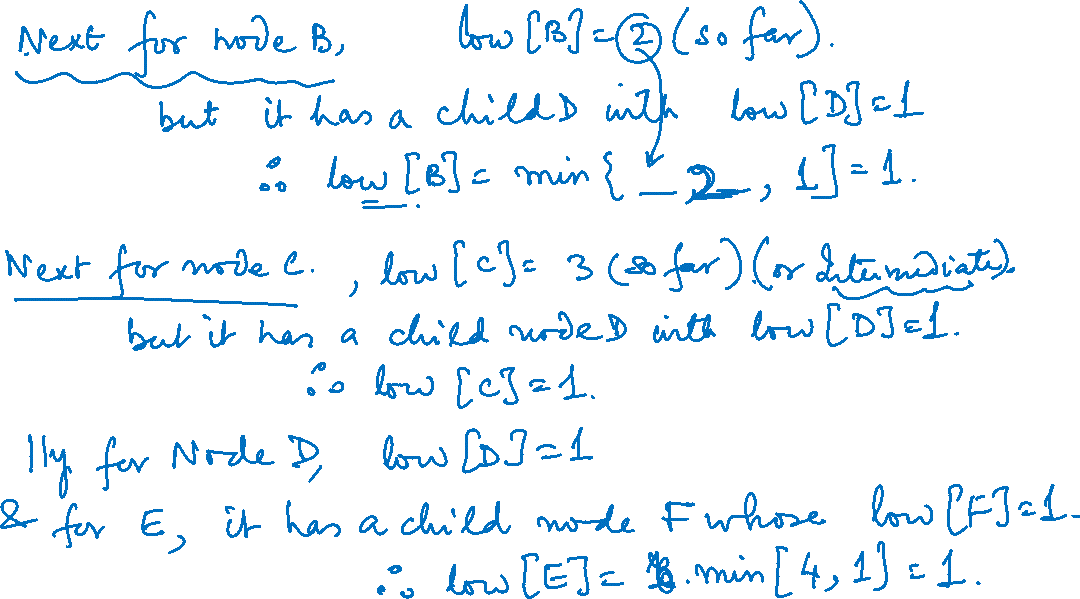 Next for node B, low [B] = 2 (so far).
but it has a child D with low [D] = 1
∴ low [B] = min { 2, 1] = 1.
Next for node C. , low [C] = 3 (so far) (or Intermediate).
but it has a child node D with low [D] = 1.
∴ low [C] = 1.
lly for Node D, low [D] = 1
& for E, it has a child node F whose low [F] = 1.
∴ low [E] = min [4, 1] = 1.